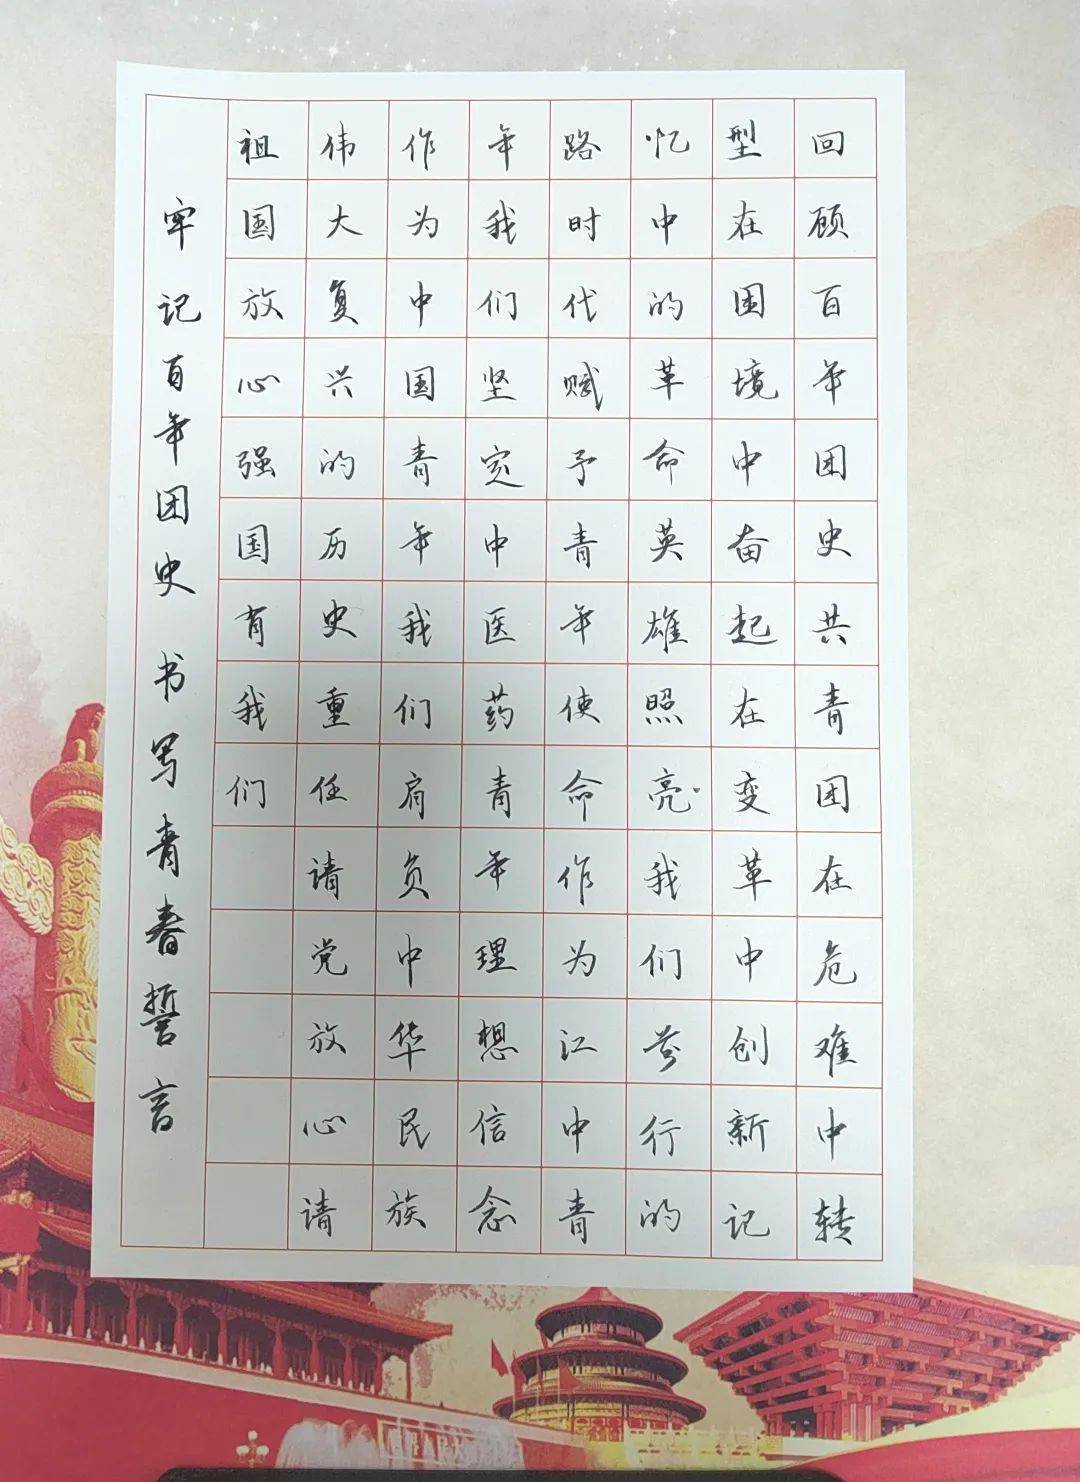 回顾百年团史共青团在危难中转
型在困境中奋起在变革中创新记
忆中的革命英雄照亮我们前行的
路时代赋予青年使命作为江中青
年我们坚定中医药青年理想信念
作为中国青年我们肩负中华民族
伟大复兴的历史重任请党放心请
祖国放心强国有我们
牢记百年团史 书写青春誓言